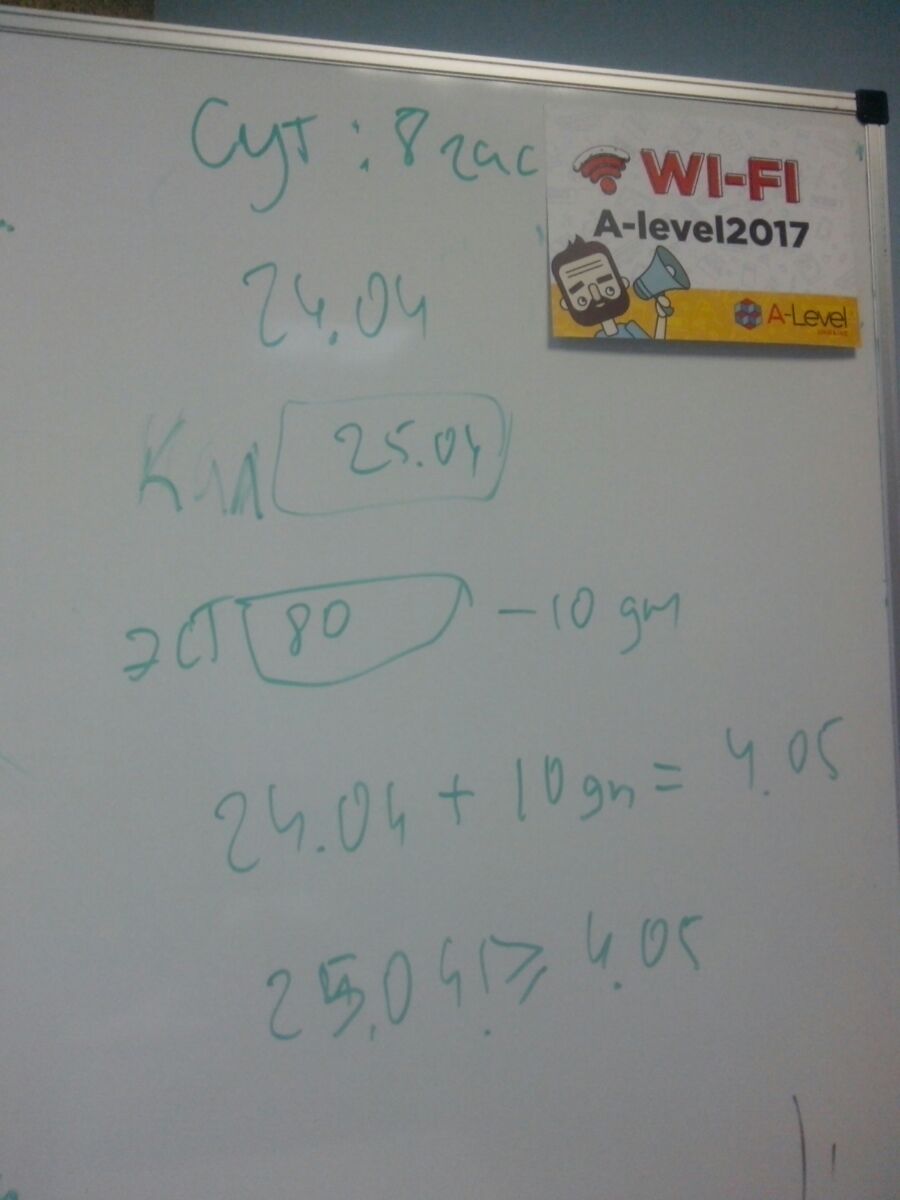 Сут : 8 час
WI-FI
A-level2017
A-Level
UKRAINE
24.04
25.04
эст 80 - 10 дн
24.04 + 10 дн = 4.05
25.04 !≥ 4.05